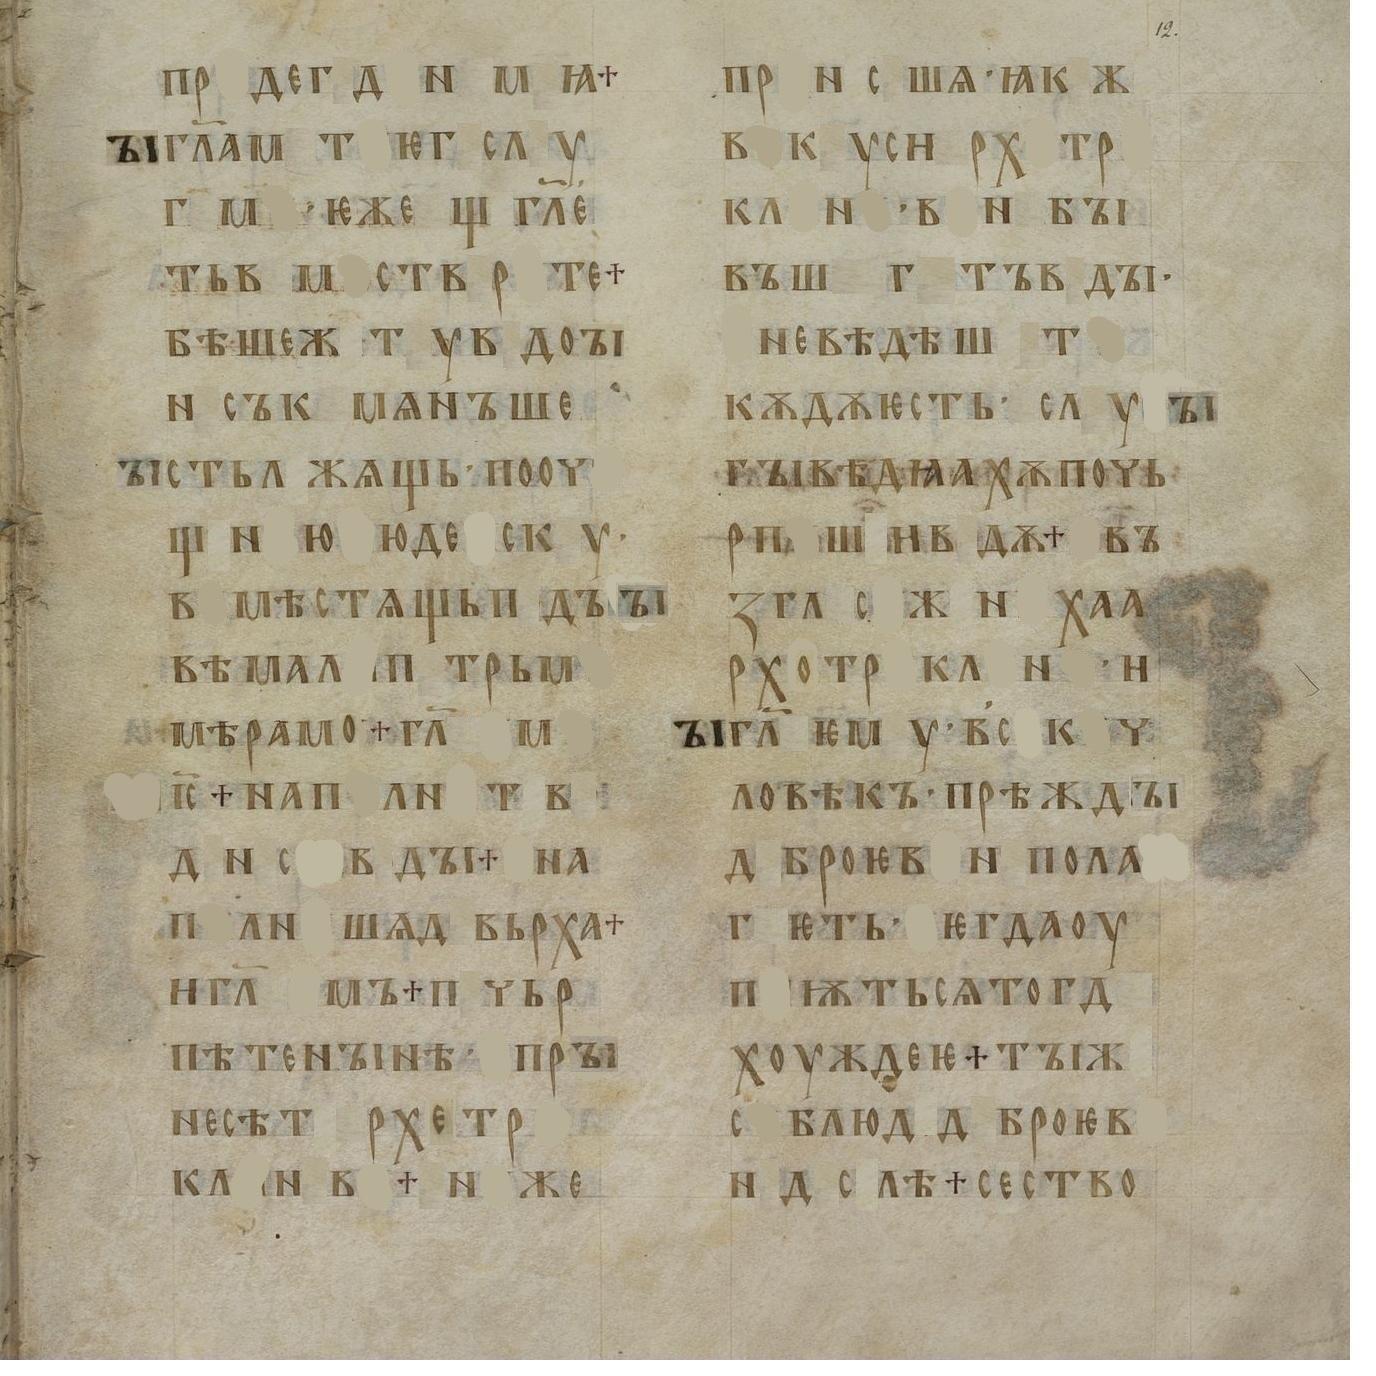 12.
пр дег д н м ꙗ+
ъігл҃ам т ѥг сл у
г м ·ѥже щ гл҃е
тьв м ств р те+
бѣшеж т ув доъі
н сък мѧнъше
ъістьл жѧщь·нооу
щ н ю юде ск у·
в мѣстѧщьп дъъі
вѣмал п трьм
мѣрамо+гл҃ м
іс҃+нап лн т в
д н с в дъі+ на
п лн шѧд вьрха+
нгл҃ мъ+п чьр
пѣтенъінѣ· пръі
несѣт рхетр
кл н в + н же
пр н с шѧ·ꙗк ж
в к усн рх тр
кл н ·в н бъі
въш г тъв дъі·
невѣдѣш т
кѫдѫѥсть· сл у ъі
гъівѣдꙗахѫпочь
рп ш нв дѫ+ въ
згл с ж н хаа
рхотр кл н ·н
ъігл҃ ѥм у·вс к ч
ловѣкъ·прѣждъі
д броѥв н пола
г ѥть· ѥгдаоу
п ѭтьсѧтогд
хоуждеѥ+тъіж
с блюд д броѥв
н д с лѣ+сество